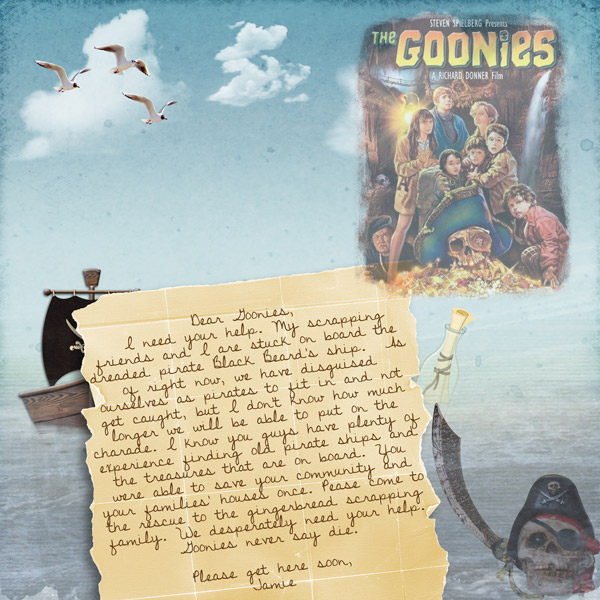 STEVEN SPIELBERG Presents
THE GOONiES
A RICHARD DONNER Film
Dear Goonies,
I need your help. My scrapping
friends and I are stuck on board the
dreaded pirate Black Beard's ship. As
of right now, we have disguised
ourselves as pirates to fit in and not
get caught, but I don't know how much
longer we will be able to put on the
charade. I know you guys have plenty of
experience finding old pirate ships and
the treasures that are on board. You
were able to save your community and
your families' houses once. Pease come to
the rescue to the gingerbread scrapping
family. We desperately need your help.
Goonies never say die.
Please get here soon,
Jamie